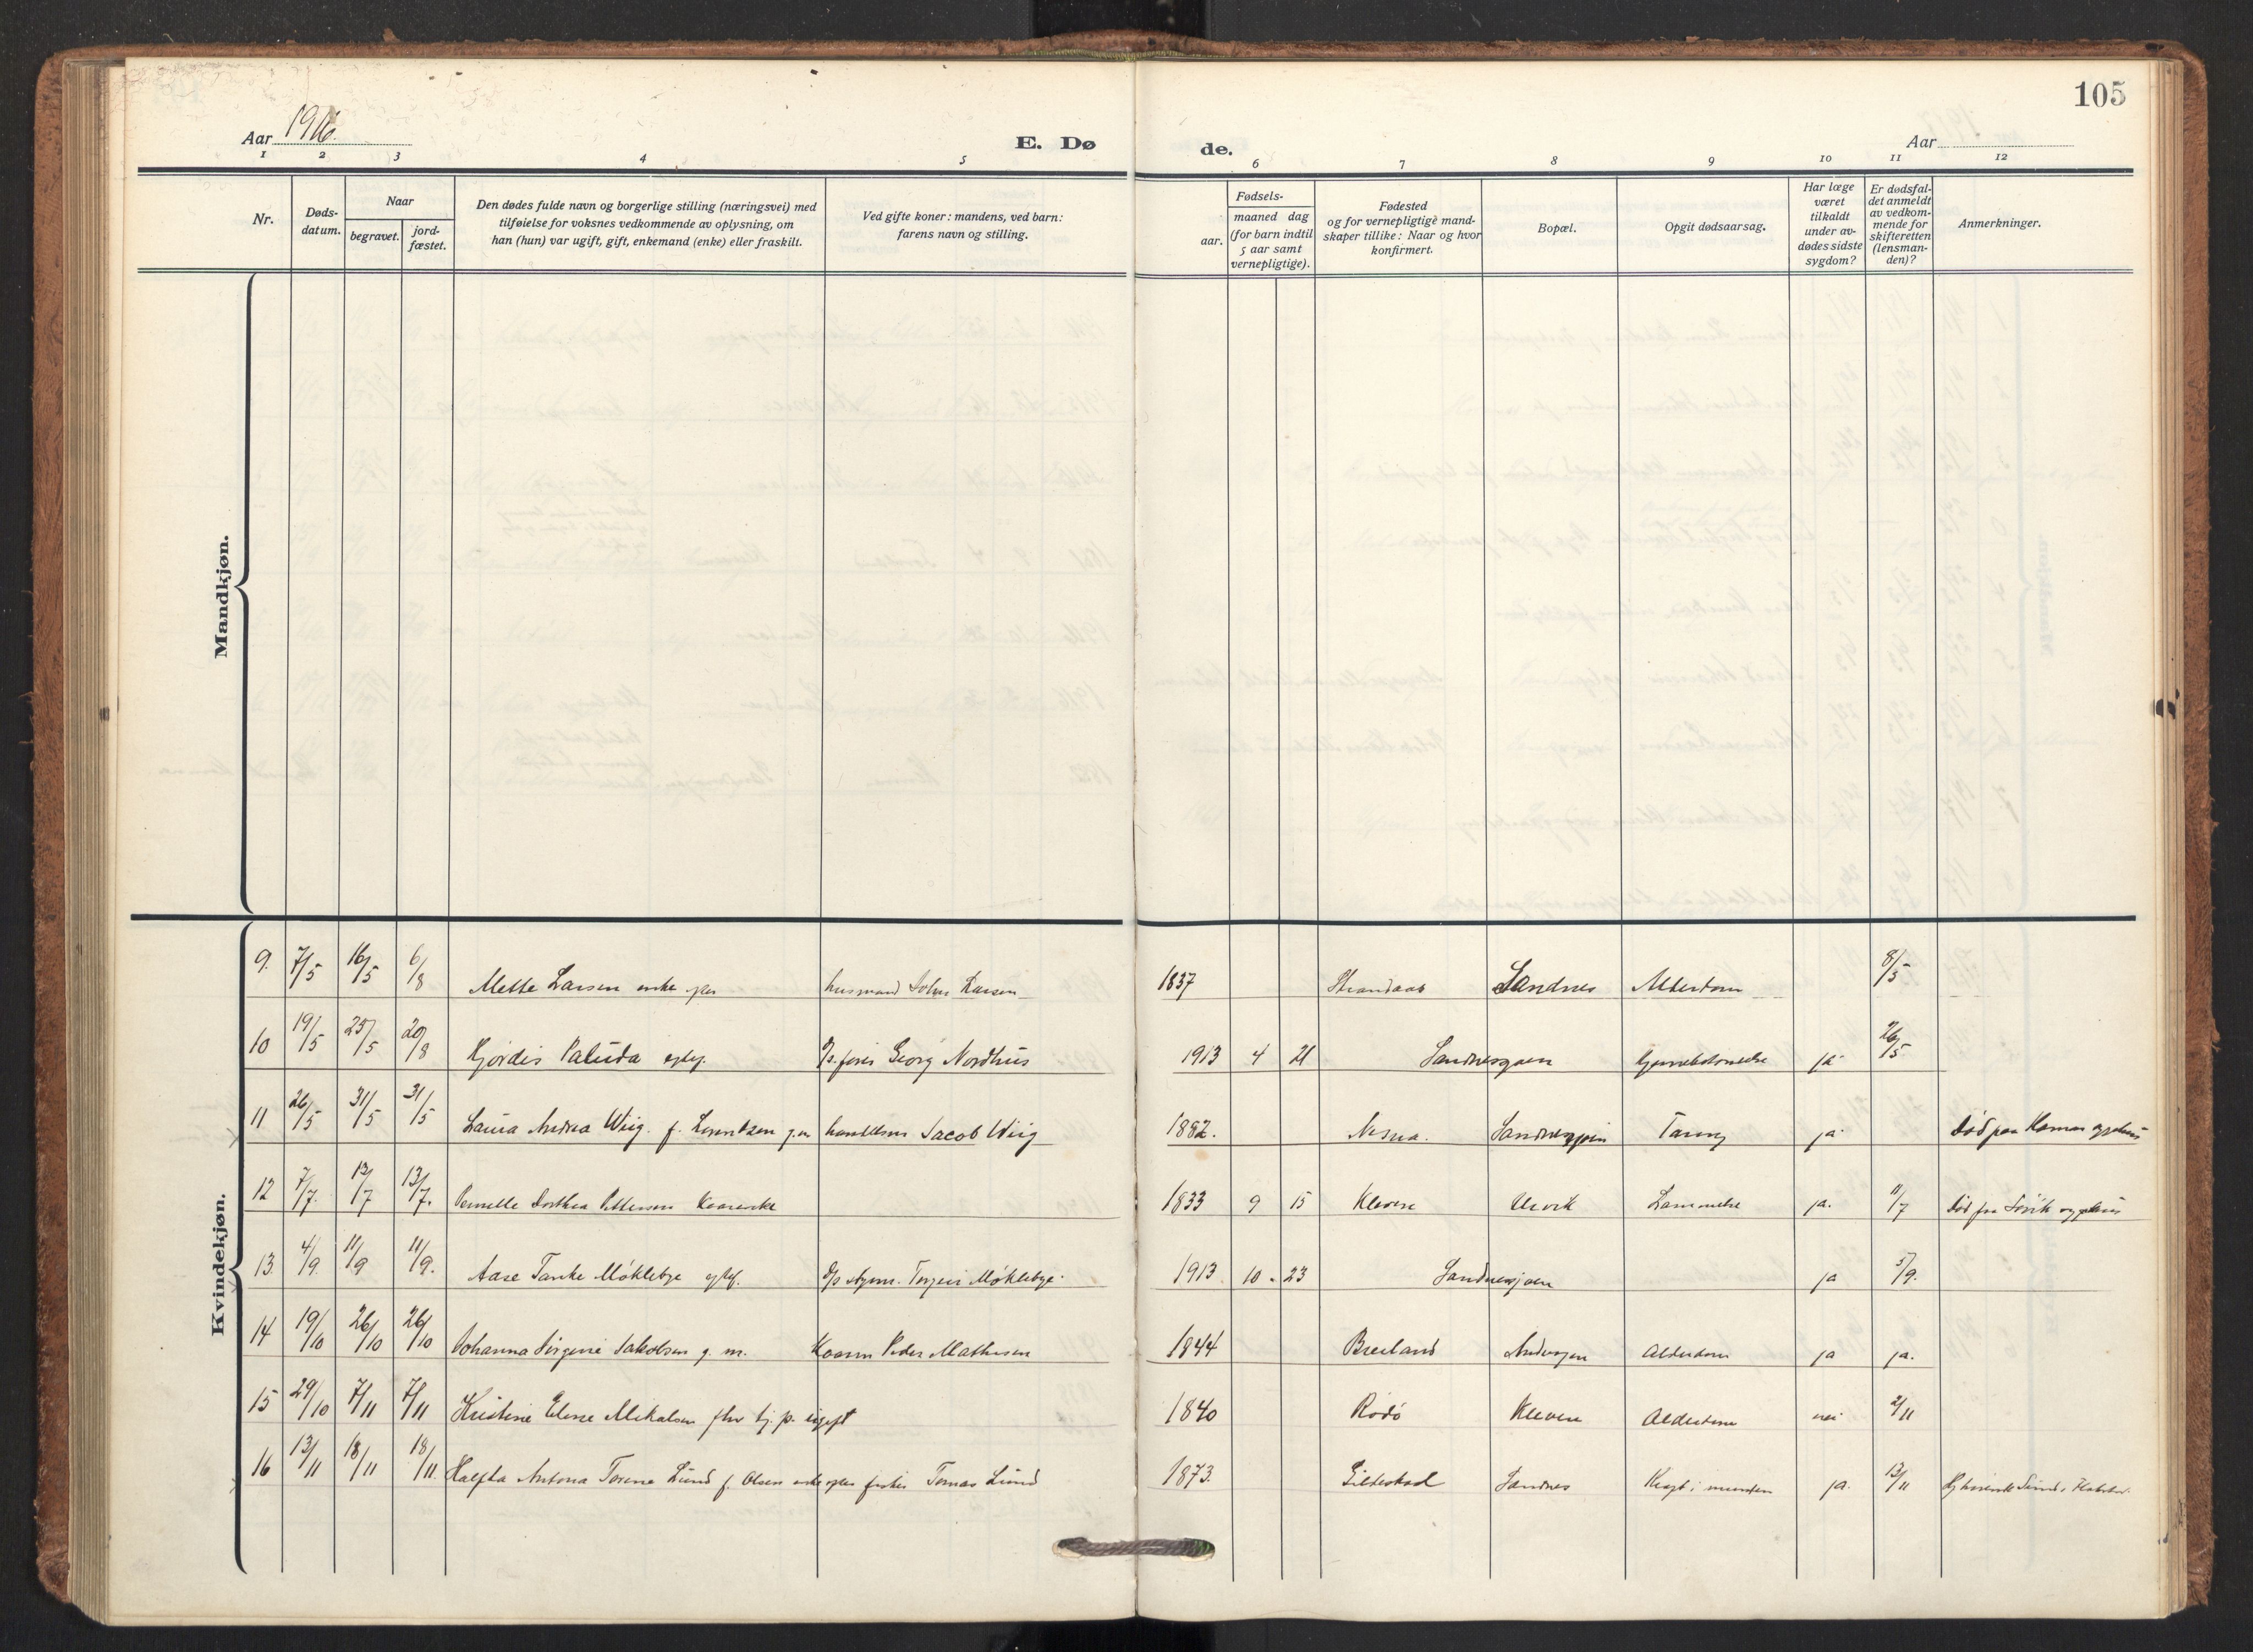 105
Aar 1916.
E. Dø
de.
Aar
1 2 3 4 5 6 7 8 9 10 11 12
Nr.
Døds-
datum.
Naar
begravet.
jord-
fæstet.
Den dødes fulde navn og borgerlige stilling (næringsvei) med
tilføielse for voksnes vedkommende av oplysning, om
han (hun) var ugift, gift, enkemand (enke) eller fraskilt.
Ved gifte koner: mandens, ved barn:
farens navn og stilling.
Fødsels-
aar.
maaned dag
(for barn indtil
5 aar samt
vernepligtige).
Fødested
og for vernepligtige mand-
skaper tillike: Naar og hvor
konfirmert.
Bopæl.
Opgit dødsaarsag.
Har læge
været
tilkaldt
under av-
dødes sidste
sygdom?
Er dødsfal-
det anmeldt
av vedkom-
mende for
skifteretten
(lensman-
den)?
Anmerkninger.
Mandkjøn.
Kvindekjøn.
9. 7/5 16/5 6/8 Mette Larsen enke husmand Larsen 1837 Strandaas Sandnes Alderdom 8/5
10 19/5 25/5 20/8 Hjørdis Paluda Georg Nordhus 1913 4 21 Sandnesjøen ja 26/5
11 26/5 31/5 31/5 Laura Andrea Wiig. f. Lorentzen g.m. Jacob Wiig 1882. Nesna. Sandnesjøen Tæring ja Død paa sygehus
12 7/7. 13/7 13/7. Pernelle Dorthea Pettersen 1833 9 15 Klevere Ulvik ja. 11/7 Død sygehus
13. 4/9. 11/9 11/9. Aase Tanke Møklebye Møklebye. 1913 10. 23 Sandnesjøen ja 5/9.
14 19/10 26/10 26/10 Johanna Jakobsen g. m. Peder Mathisen 1844 Breiland Alderdom ja ja.
15 29/10 7/11 7/11 Kristine Elene Mikalsen tj. p. ugift 1840 Rødø Klevere Alderdom nei 2/11
16 13/11 18/11 18/11. Antona Torine Lund f. Olsen enke fisker Tomas Lund 1873. Gildeskaal Sandnes ja. 13/11